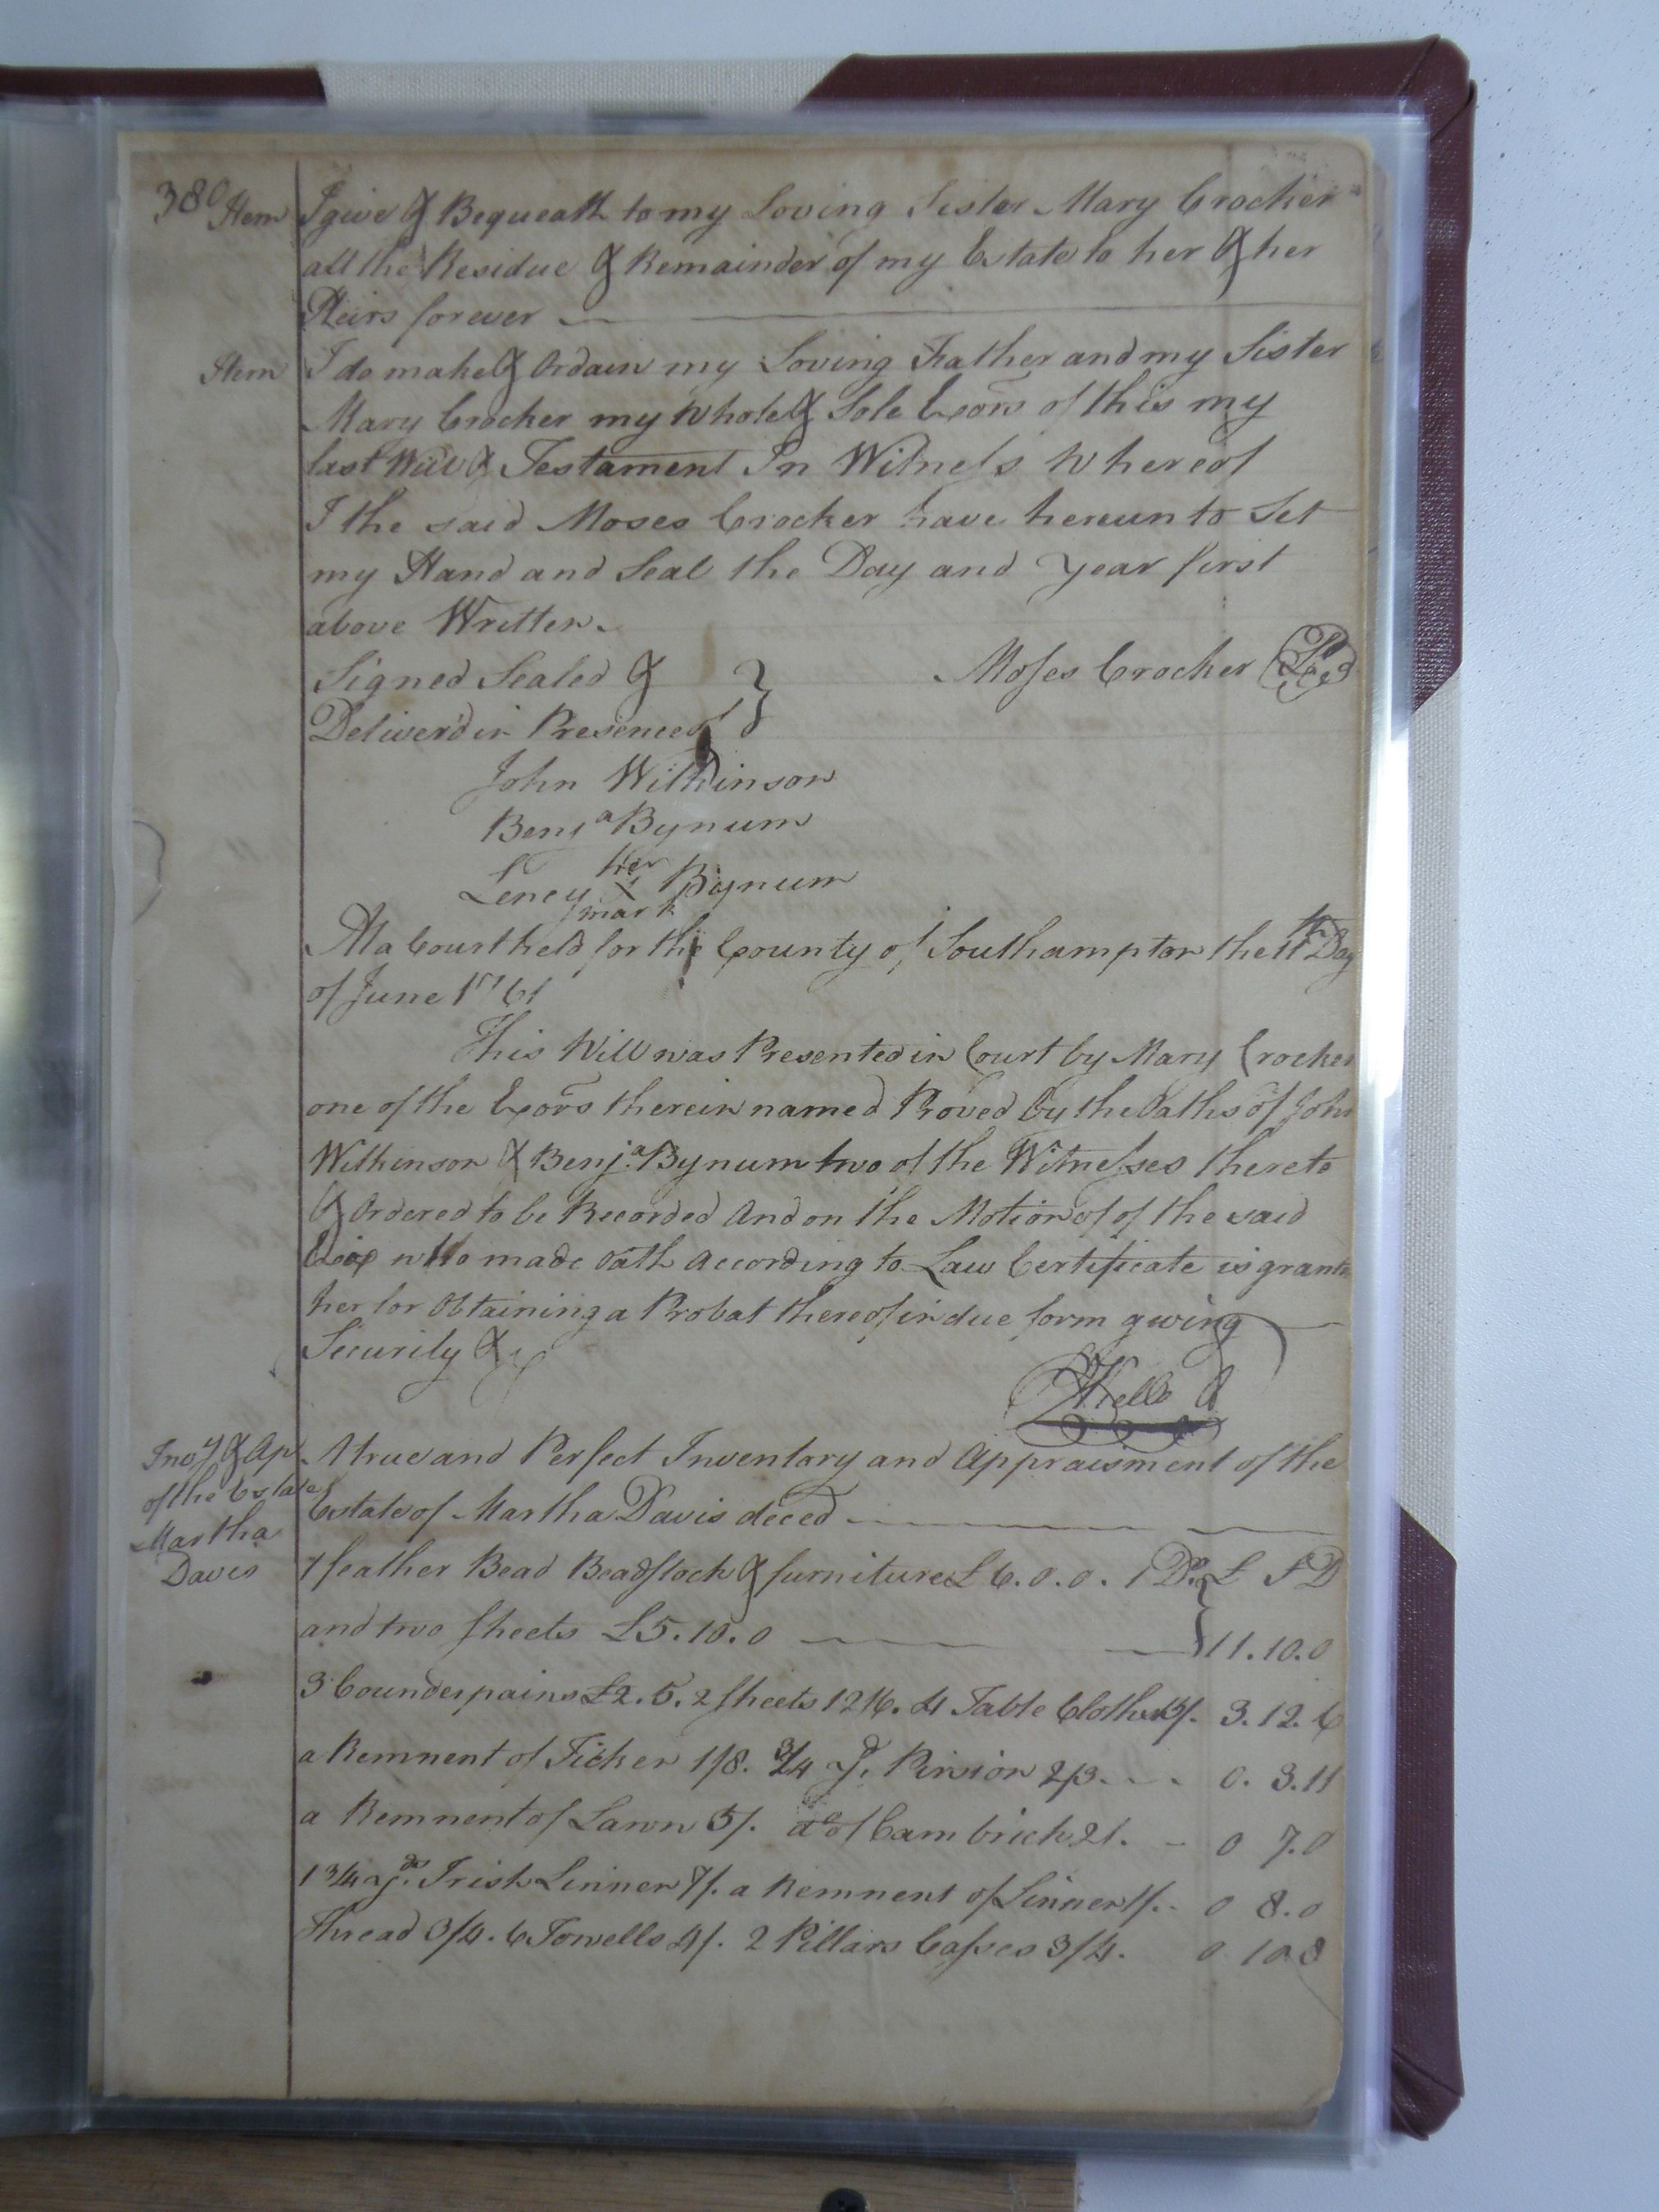 380 Item I give & Bequeath to my Loving Sister Mary Crocker
all the Residue & Remainder of my Estate to her & her
Heirs forever
Item I do make & Ordain my Loving Father and my Sister
Mary Crocker my Whole & Sole Exors of this my
last Will & Testament In Witness Whereof
I the said Moses Crocker have hereunto Set
my Hand and Seal the Day and Year first
above Written.
Signed Sealed & } Moses Crocker
Deliver'd in Presence of
John Wilkinson
Benja Bynum
her
Leney X Bynum
mark
At a Court held for the County of Southampton the 11th Day
of June 1761
This Will was Presented in Court by Mary Crocker
one of the Exors therein named Proved by the Oaths of John
Wilkinson & Benja. Bynum two of the Witnesses thereto
& Ordered to be Recorded And on the Motion of of the said
who made Oath According to Law Certificate is
her for Obtaining a Probat thereof in due form giving
Security &
Inoy & Ap A true and Perfect Inventory and Appraisment of the
of the Estate of
Estate of Martha Davis deced
Martha
Davis
1 feather Bead Beadstock & furniture £6.0.0. 1 Do. } £ S D
and two sheets £5.10.0 11.10.0
3 Counderpains £2.5. 2 sheets 12/6. 4 Table Cloths 15/. 3.12.6
a Remnent of Ticken 1/8. 3/4 yd. 2/3. 0. 3.11
a Remnent of Lawn 5/. do of Cambrick 2/. 0 7.0
1 3/4 yds. Irish Linnen 7/. a Remnent of Linnen 1/. 0 8.0
Thread 3/4. 6 Towells 4/. 2 Pillars Casses 3/4. 0 10 8